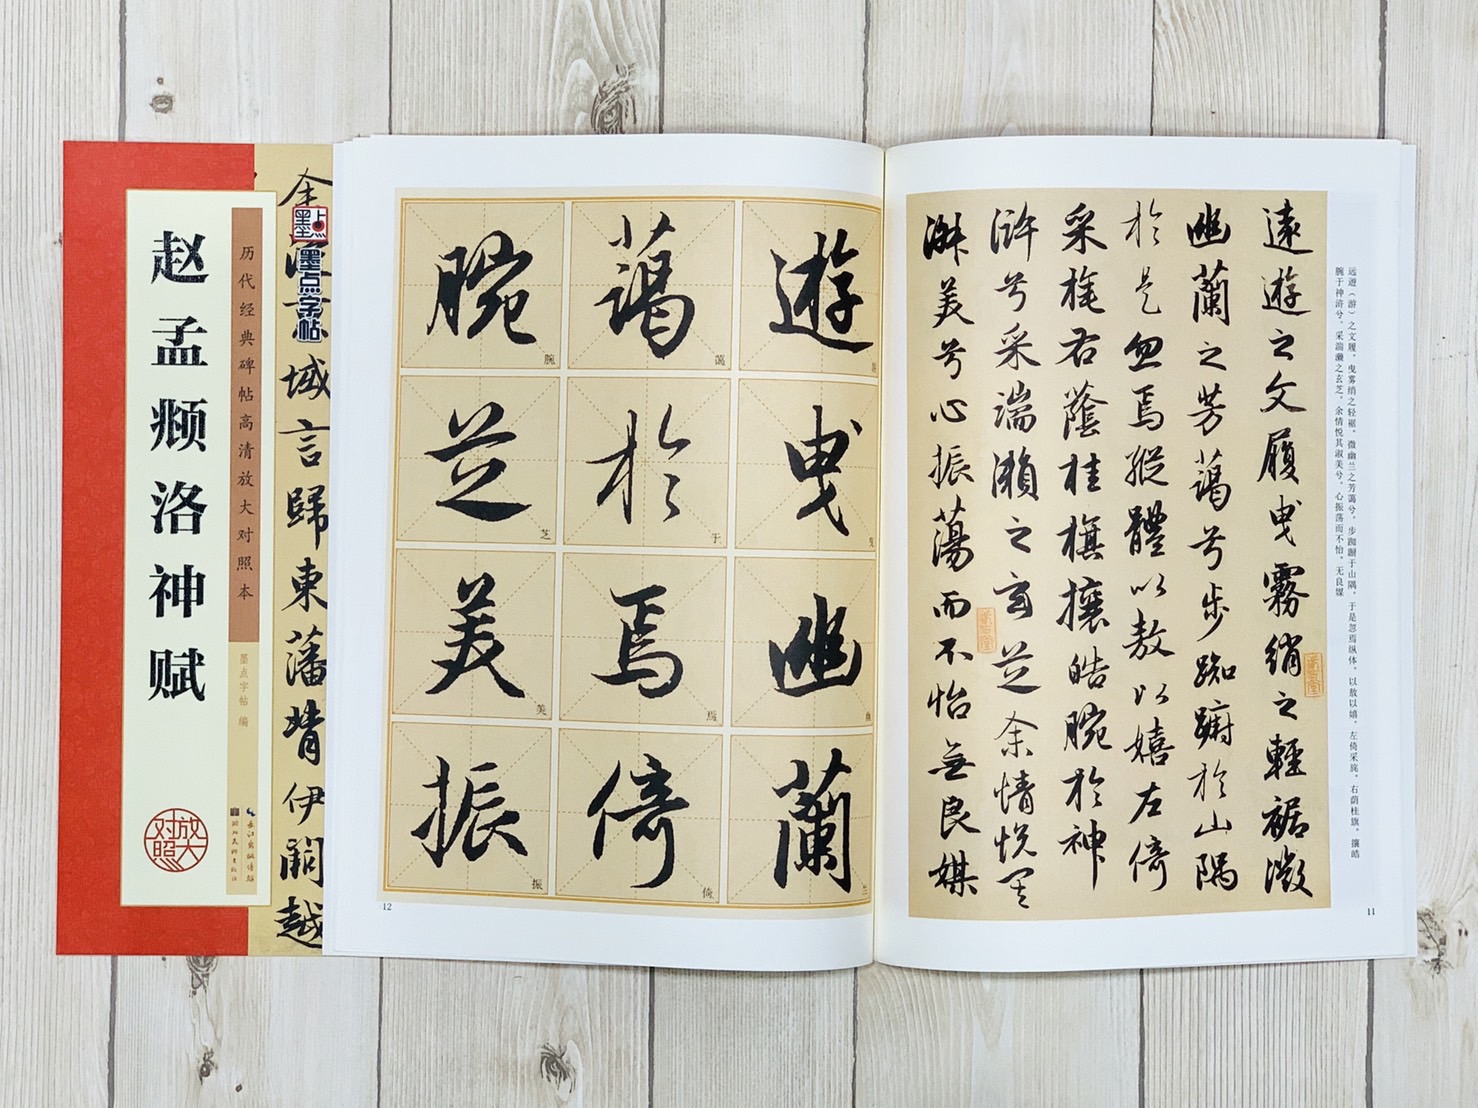 赵孟頫洛神赋
历代经典碑帖高清放大对照本
墨点字帖 编
放大对照
长江出版传媒
湖北美术出版社
墨点
墨点字帖
域言歸東藩背伊闕越
遊
曳
幽
蘭
藹
於
焉
倚
腕
芝
美
振
曳
兰
蔼
于
焉
倚
腕
芝
美
振
12
遠遊之文履曳霧綃之輕裾微
幽蘭之芳藹兮步踟躕於山隅
於是忽焉縱體以敖以嬉左倚
采旄右蔭桂旗攘皓腕於神
滸兮采湍瀨之玄芝余情悅其
淑美兮心振蕩而不怡無良媒
远遊（游）之文履，曳雾绡之轻裾。微幽兰之芳蔼兮，步踟蹰于山隅。于是忽焉纵体，以敖以嬉。左倚采旄，右荫桂旗。攘皓
腕于神浒兮，采湍濑之玄芝。余情悦其淑美兮，心振荡而不怡。无良媒
11